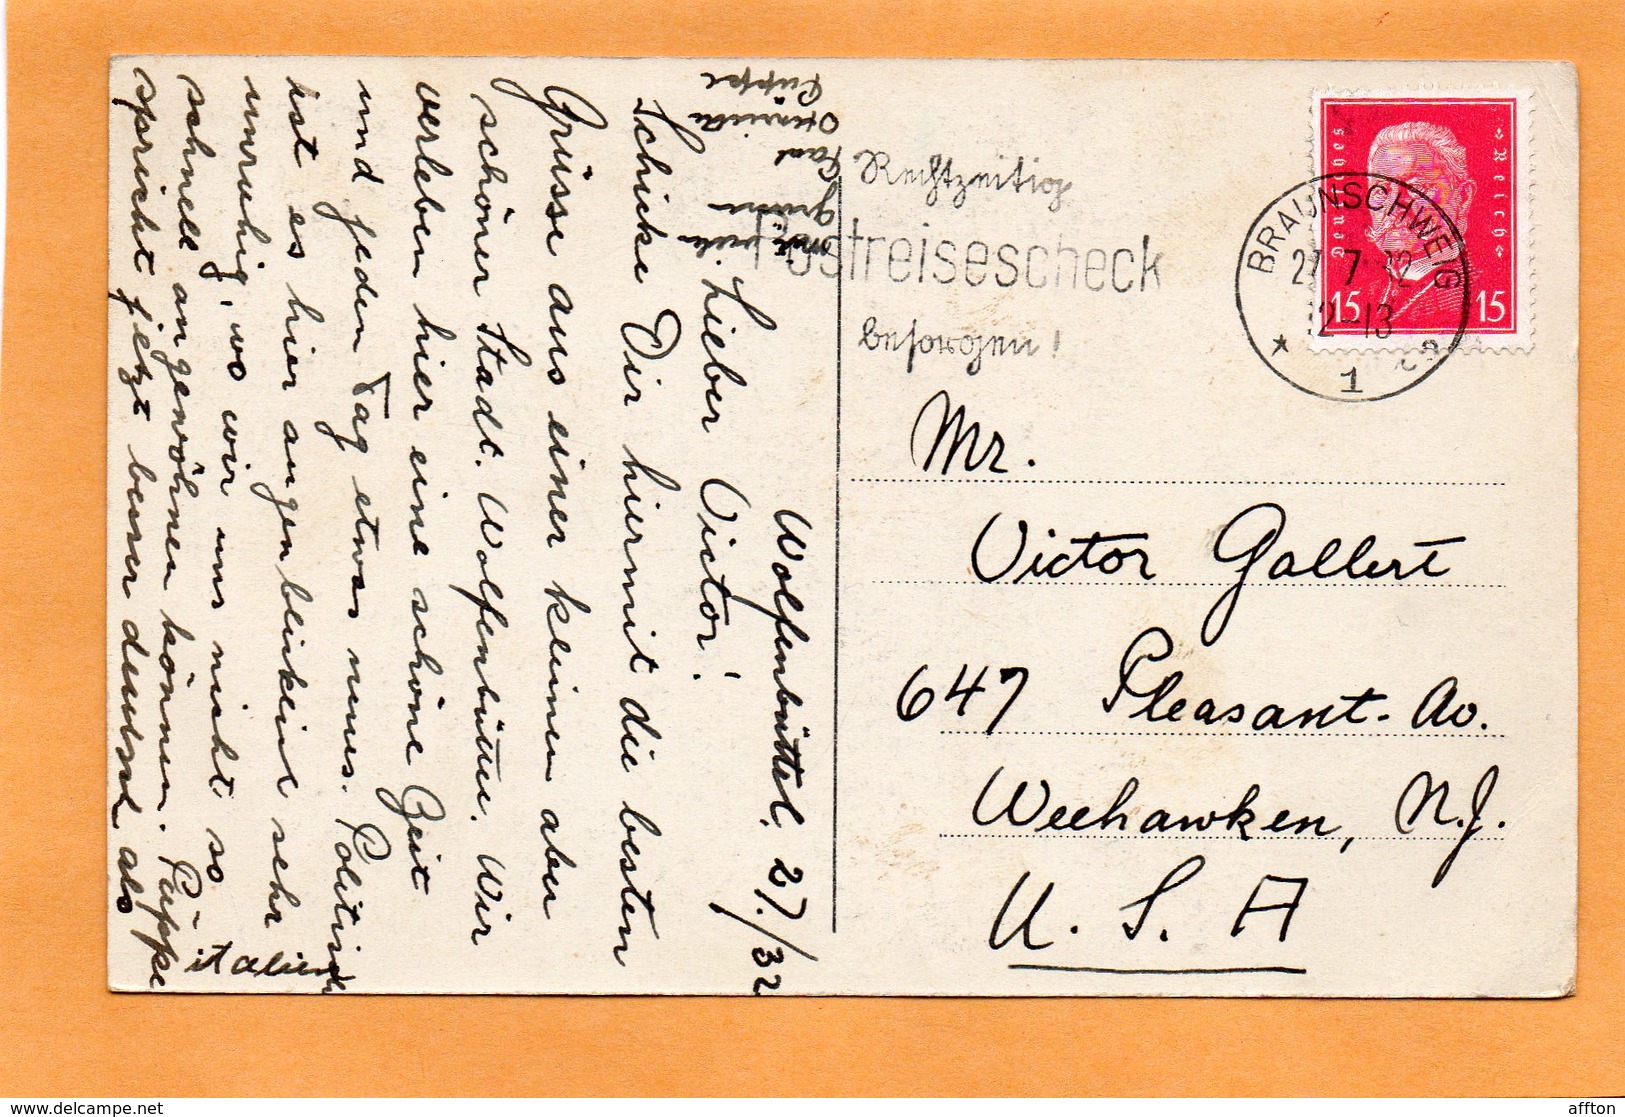 Wolfenbüttel. 27./32
Lieber Victor!
Schicke Dir hiermit die besten
Grüsse aus einer kleinen aber
schönen Stadt. Wolfenbüttel. Wir
verleben hier eine schöne Zeit
und jeden Tag etwas neues. Politisch
ist es hier augenblicklich sehr
unruhig, wo wir uns nicht so
schnell angewöhnen können. Püppe
spricht jetzt besser deutsch als
italienisch
Püppe
Rechtzeitig
Postreisescheck
besorgen!
Deutsches Reich
15 15
BRAUNSCHWEIG
27.7.32
12-13
1
Mr.
Victor Gallert
647 Pleasant-Av.
Weehawken, N.J.
U. S. A
delcampe.net
affton